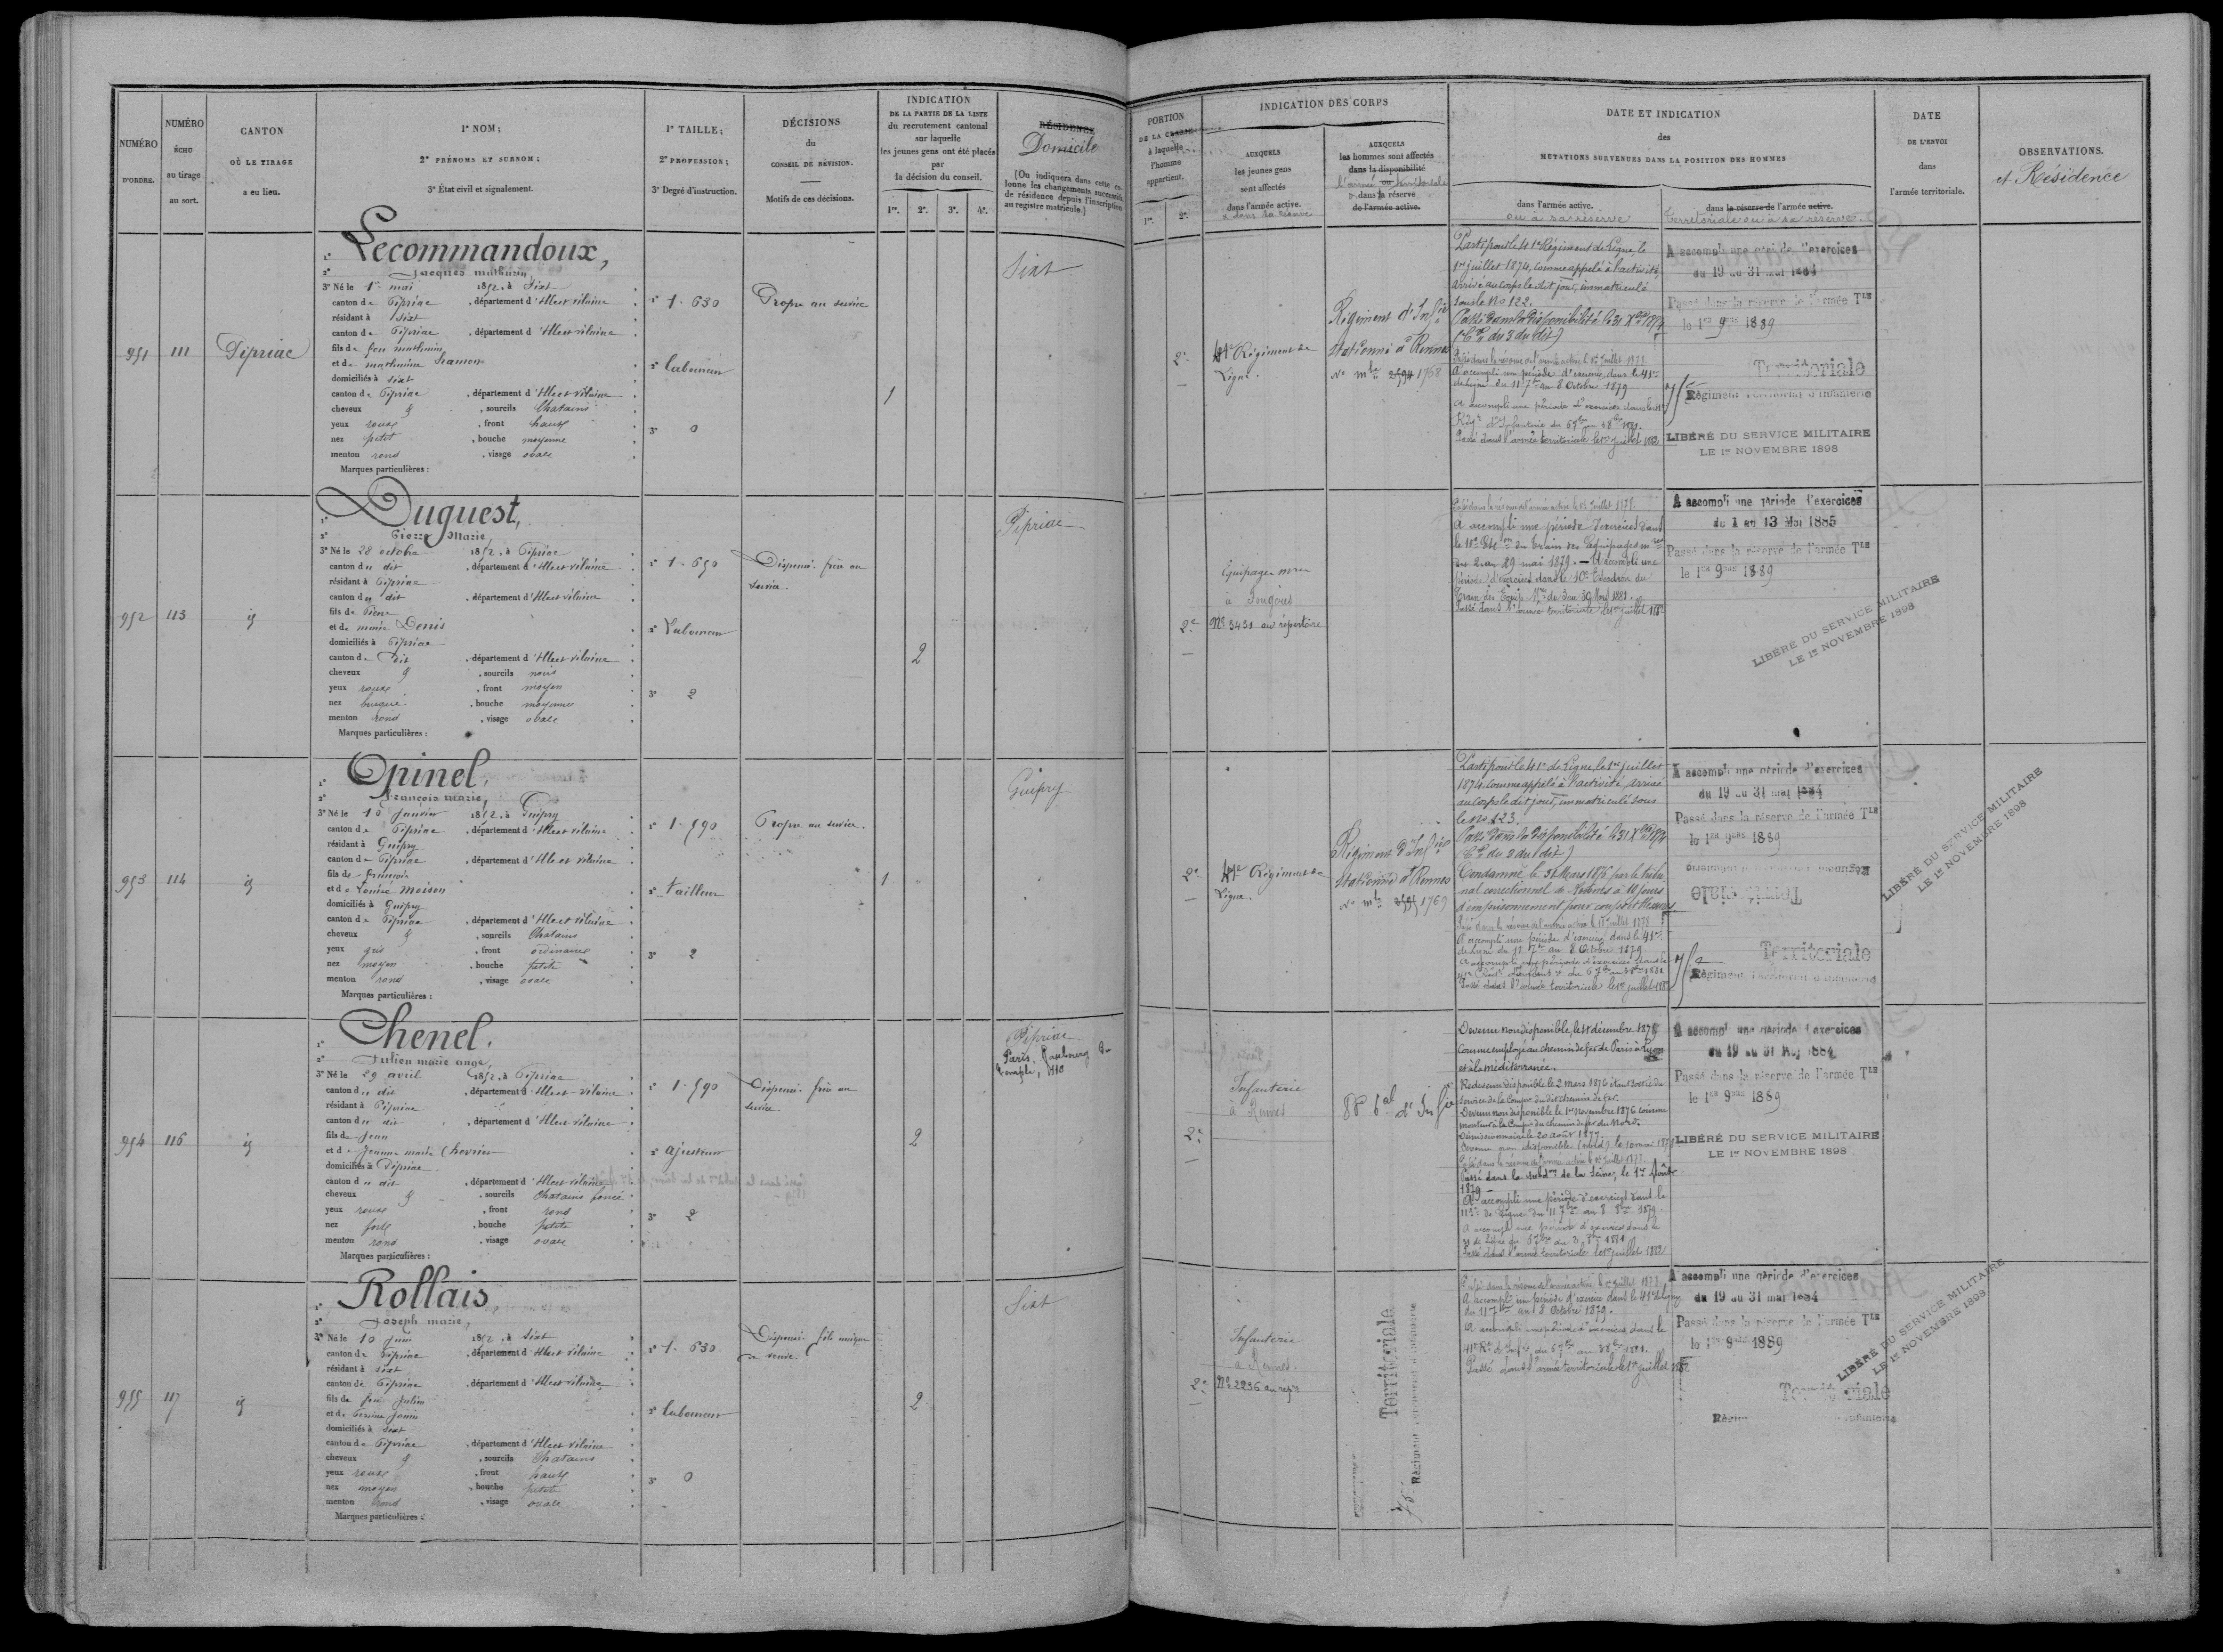 NUMÉRO
D'ORDRE.
NUMÉRO
ÉCHU
au tirage
au sort.
CANTON
OÙ LE TIRAGE
a eu lieu.
1º NOM;
2º PRÉNOMS ET SURNOM;
3º État civil et signalement.
1º TAILLE;
2º PROFESSION;
3º Degré d'instruction.
DÉCISIONS
du
CONSEIL DE RÉVISION.
Motifs de ces décisions.
INDICATION
DE LA PARTIE DE LA LISTE
du recrutement cantonal
sur laquelle
les jeunes gens ont été placés
par
la décision du conseil.
1re. 2e. 3e. 4e.
RÉSIDENCE
Domicile
(On indiquera dans cette colonne les changements successifs
de résidence depuis l'inscription
au registre matricule.)
PORTION
DE LA CLASSE
à laquelle
l'homme
appartient.
1re. 2e.
INDICATION DES CORPS
AUXQUELS
les jeunes gens
sont affectés
dans l'armée active.
& dans sa réserve
AUXQUELS
les hommes sont affectés
dans la disponibilité
ou
l'armée territoriale
& dans la réserve
de l'armée active.
DATE ET INDICATION
des
MUTATIONS SURVENUES DANS LA POSITION DES HOMMES
dans l'armée active.
ou à sa réserve
dans la réserve de l'armée active.
territoriale ou à sa réserve.
DATE
DE L'ENVOI
dans
l'armée territoriale.
OBSERVATIONS.
et Résidence
951
111
Pipriac
1º Lecommandoux,
2º Jacques mathurin,
3º Né le 1er mai 1852, à Sixt
canton de Pipriac, département d'Ille et vilaine
résidant à Sixt
canton de Pipriac, département d'Ille et vilaine
fils de feu mathurin
et de mathurine hamon
domiciliés à Sixt
canton de Pipriac, département d'Ille et vilaine
cheveux & , sourcils Chatains
yeux roux , front haut
nez petit , bouche moyenne
menton rond , visage ovale
Marques particulières :
1º 1.630
2º laboureur
3º 0
Propre au service
1
Sixt
2e
41e Régiment de
Ligne.
Régiment d'Infie
stationné à Rennes
No mle 1768
Parti pour le 41e Régiment de Ligne, le
1er juillet 1874, comme appelé à l'activité,
arrivé au corps le dit jour, immatriculé
sous le No 122.
Passé dans la disponibilité le 31 Xbre 1874
Passé dans la réserve de l'armée active le 1er Juillet 1878.
A accompli une période d'exercice, dans le 41e
de ligne du 11 7bre au 8 Octobre 1879
A accompli une période d'exercices dans le 41e
Régt d'Infanterie du 6 7bre au 3 8bre 1881.
Passé dans l'armée territoriale le 1er juillet 1882
A accompli une période d'exercices
du 19 au 31 mai 1884
Passé dans la réserve de l'armée Tle
le 1er 9bre 1889
Territoriale
Régiment Territorial d'Infanterie
LIBÉRÉ DU SERVICE MILITAIRE
LE 1er NOVEMBRE 1898
952
113
id
1º Duguest,
2º Pierre Marie
3º Né le 28 octobre 1852, à Pipriac
canton du dit , département d'Ille et vilaine
résidant à Pipriac
canton du dit , département d'Ille et vilaine
fils de Pierre
et de marie Denis
domiciliés à Pipriac
canton du Dit , département d'Ille et vilaine
cheveux & , sourcils noirs
yeux roux , front moyen
nez busqué , bouche moyenne
menton rond , visage ovale
Marques particulières :
1º 1.650
2º Laboureur
3º 2
Dispensé. frère au
service.
2
Pipriac
2e
Equipages mres
à Fougères
No 3431 au répertoire
Passé dans la réserve de l'armée active le 1er Juillet 1878.
A accompli une période d'exercices dans
le 11e Esc on du Train des Equipages mres
du 2 au 29 mai 1879. — A accompli une
période d'exercices dans le 10e Escadron du
Train des Equip. Mres du 3 au 30 Mars 1881.
Passé dans l'armée territoriale le 1er juillet 1882
A accompli une période d'exercices
du 1 au 13 Mai 1885
Passé dans la réserve de l'armée Tle
le 1er 9bre 1889
LIBÉRÉ DU SERVICE MILITAIRE
LE 1er NOVEMBRE 1898
953
114
id
1º Opinel,
2º François marie,
3º Né le 10 Janvier 1852, à Guipry
canton de Pipriac , département d'Ille et vilaine
résidant à Guipry
canton de Pipriac , département d'Ille et vilaine
fils de françois
et de Louise Moison
domiciliés à Guipry
canton de Pipriac , département d'Ille et vilaine
cheveux & , sourcils Chatains
yeux gris , front ordinaire
nez moyen , bouche petite
menton rond , visage ovale
Marques particulières :
1º 1.590
2º tailleur
3º 2
Propre au service.
1
Guipry
2e
41e Régiment de
Ligne.
Régiment d'Infie
stationné à Rennes
No mle 1769
Parti pour le 41e de Ligne, le 1er juillet
1874, comme appelé à l'activité, arrivé
au corps le dit jour, immatriculé sous
le No 123.
Passé dans la disponibilité le 31 Xbre 1874
Condamné le 31 Mars 1876 par le tribu
nal correctionnel de Redon à 10 jours
d'emprisonnement pour coups et blessures
Passé dans la réserve de l'armée active le 1er juillet 1878.
A accompli une période d'exercice dans le 41e
de ligne du 11 7bre au 8 Octobre 1879
A accompli une période d'exercices dans le
41e Régt d'Infant. du 6 7bre au 3 8bre 1881
Passé dans l'armée territoriale le 1er juillet 1882
A accompli une période d'exercices
du 19 au 31 mai 1884
Passé dans la réserve de l'armée Tle
le 1er 9bre 1889
Territoriale
Territoriale
Régiment Territorial d'Infanterie
LIBÉRÉ DU SERVICE MILITAIRE
LE 1er NOVEMBRE 1898
954
116
id
1º Chenel,
2º Julien marie ange,
3º Né le 29 avril 1852, à Pipriac
canton du dit , département d'Ille et vilaine
résidant à Pipriac
canton du dit , département d'Ille et vilaine
fils de Jean
et de Jeanne marie Chevrier
domiciliés à Pipriac
canton du dit , département d'Ille et vilaine
cheveux & , sourcils Chatains foncé
yeux roux , front rond
nez fort , bouche petite
menton rond , visage ovale
Marques particulières :
1º 1.590
2º ajusteur
3º 2
Dispensé. frère au
service.
2
Pipriac
Paris, faubourg du
Temple, No 110
2e
Infanterie
à Rennes
Devenu non disponible, le 11 décembre 1875
comme employé au chemin de fer de Paris à Lyon
et à la méditerranée.
Redevenu disponible le 2 mars 1876 étant sorti du
service de la Compie du dit chemin de fer.
Devenu non disponible le 1er novembre 1876 comme
monteur à la Compie du chemin de fer du Nord.
Démissionnaire le 20 août 1877.
Devenu non disponible (nord) le 10 mai 1878
Passé dans la réserve de l'armée active le 1er Juillet 1878.
Passé dans la subd on de la Seine, le 1er Août
1879 —
A accompli une période d'exercices dans le
de Ligne du 11 7bre au 8 8bre 1879.
A accompli une période d'exercices dans le
de Ligne du 6 7bre au 3 8bre 1881
Passé dans l'armée territoriale le 1er juillet 1882
A accompli une période d'exercices
du 19 au 31 Mai 1884
Passé dans la réserve de l'armée Tle
le 1er 9bre 1889
LIBÉRÉ DU SERVICE MILITAIRE
LE 1er NOVEMBRE 1898
955
117
id
1º Rollais,
2º Joseph marie,
3º Né le 10 Juin 1852, à Sixt
canton de Pipriac , département d'Ille et vilaine
résidant à Sixt
canton de Pipriac , département d'Ille et vilaine
fils de feu Julien
et de Perrine Jouin
domiciliés à Sixt
canton de Pipriac , département d'Ille et vilaine
cheveux & , sourcils Chatains
yeux roux , front haut
nez moyen , bouche petite
menton rond , visage ovale
Marques particulières :
1º 1.630
2º laboureur
3º 0
Dispensé. fils unique
de veuve.
2
Sixt
2e
Infanterie
à Rennes.
No 2236 au répre
Territoriale
Régiment Territorial d'Infanterie
Passé dans la réserve de l'armée active le 1er Juillet 1878.
A accompli une période d'exercice dans le 41e de ligne
du 11 7bre au 8 Octobre 1879.
A accompli une période d'exercices dans le
41e Rt d'Infie du 6 7bre au 3 8bre 1881.
Passé dans l'armée territoriale le 1er juillet 1882
A accompli une période d'exercices
du 19 au 31 mai 1884
Passé dans la réserve de l'armée Tle
le 1er 9bre 1889
LIBÉRÉ DU SERVICE MILITAIRE
LE 1er NOVEMBRE 1898
Territoriale